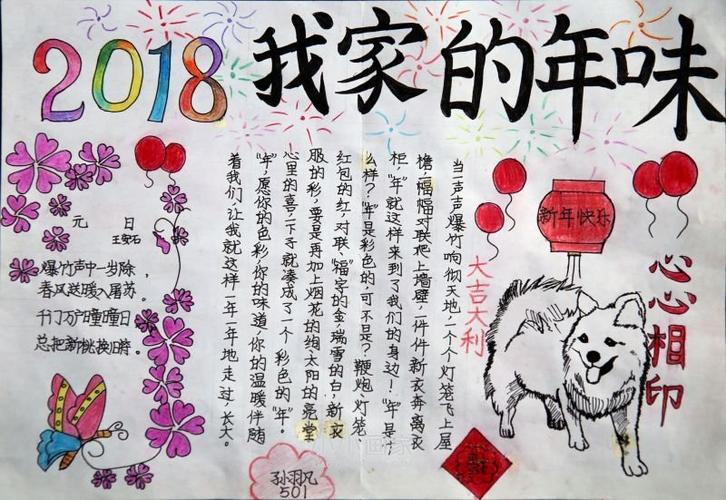 2018 我家的年味
元 日
王安石
爆竹声中一岁除，
春风送暖入屠苏。
千门万户曈曈日
总把新桃换旧符。
当一声声爆竹响彻天地,一个个灯笼飞上屋
檐,幅幅对联爬上墙壁,件件新衣奔离衣
柜,"年"就这样来到了我们的身边!"年"是什
么样?"年"是彩色的,可不是?鞭炮、灯笼、
红包的红,对联、"福"字的金,瑞雪的白,新衣
服的彩,要是再加上烟花的绚、太阳的亮、堂
心里的喜,一下子就凑成了一个彩色的"年"。
"年",愿你的色彩,你的味道,你的温暖伴随
着我们,让我就这样一年一年地走过,长大。
新年快乐
大吉大利
心心相印
孙羽凡
501